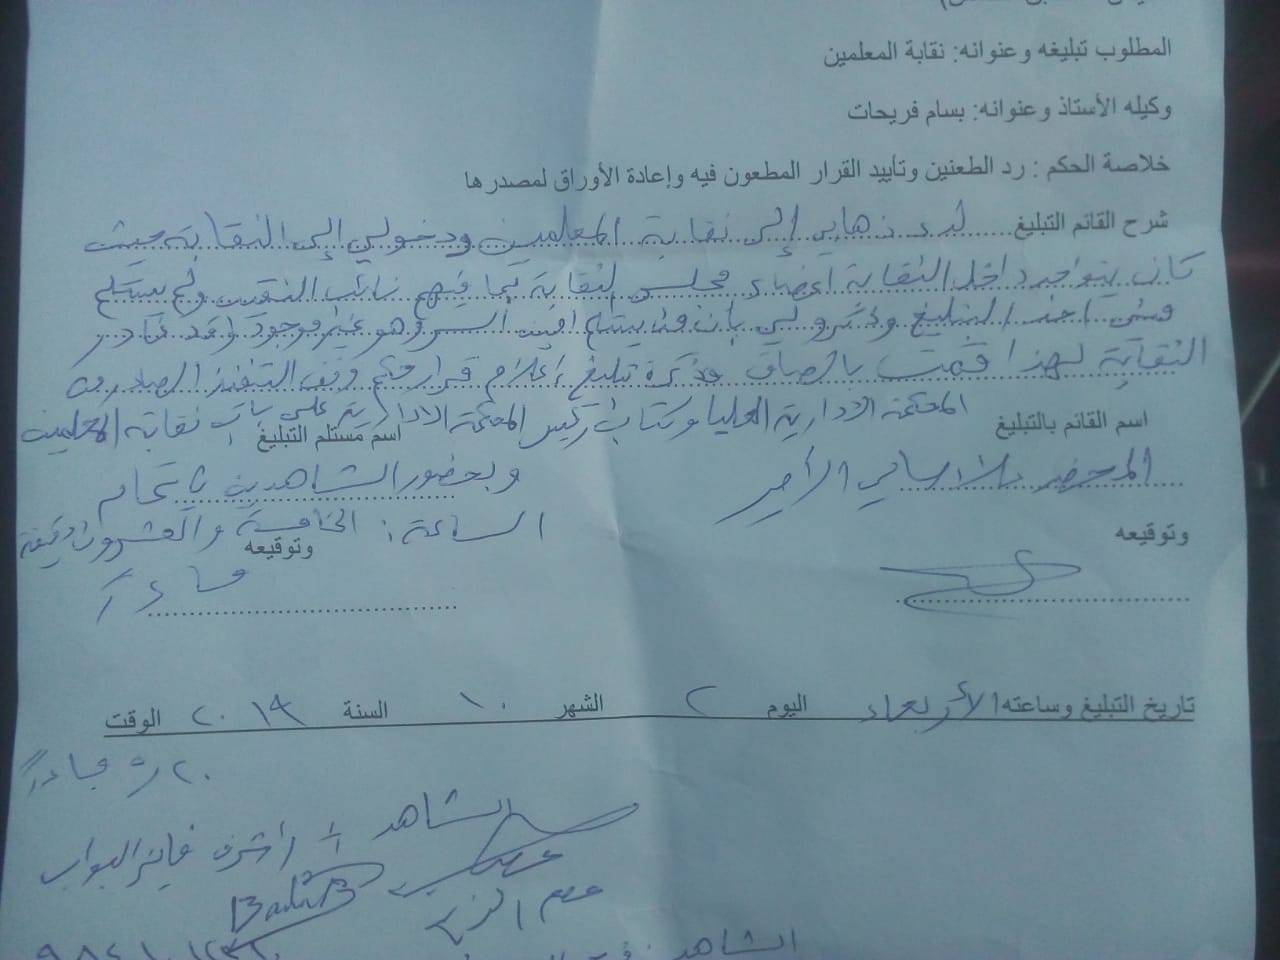 المطلوب تبليغه وعنوانه: نقابة المعلمين
وكيله الأستاذ وعنوانه: بسام فريحات
خلاصة الحكم : رد الطعنين وتأييد القرار المطعون فيه وإعادة الأوراق لمصدرها
شرح القائم التبليغ لدى ذهابي إلى نقابة المعلمين ودخولي إلى النقابة حيث
كان يتواجد داخل النقابة اعضاء مجلس النقابة بما فيهم نائب النقيب ولم يستلم
مني احد التبليغ وذكرو لي بأن من يستلم امين السر وهو غير موجود وقد غادر
النقابة لهذا قمت بالصاق مذكرة تبليغ إعلام قرار حكم وقف التنفيذ الصادر من
المحكمة الادارية العليا وكتاب رئيس المحكمة الادارية على باب نقابة المعلمين
اسم القائم بالتبليغ
اسم مستلم التبليغ
المحضر
وبحضور الشاهدين
الساعة : الخامسة والعشرون دقيقة
وتوقيعه
وتوقيعه
مساءً
تاريخ التبليغ وساعته الأربعاء اليوم ٢ الشهر ١٠ السنة ٢٠١٩ الوقت
٥٫٢٠ مساءاً
الشاهد اشرف فايز البواب
الشاهد